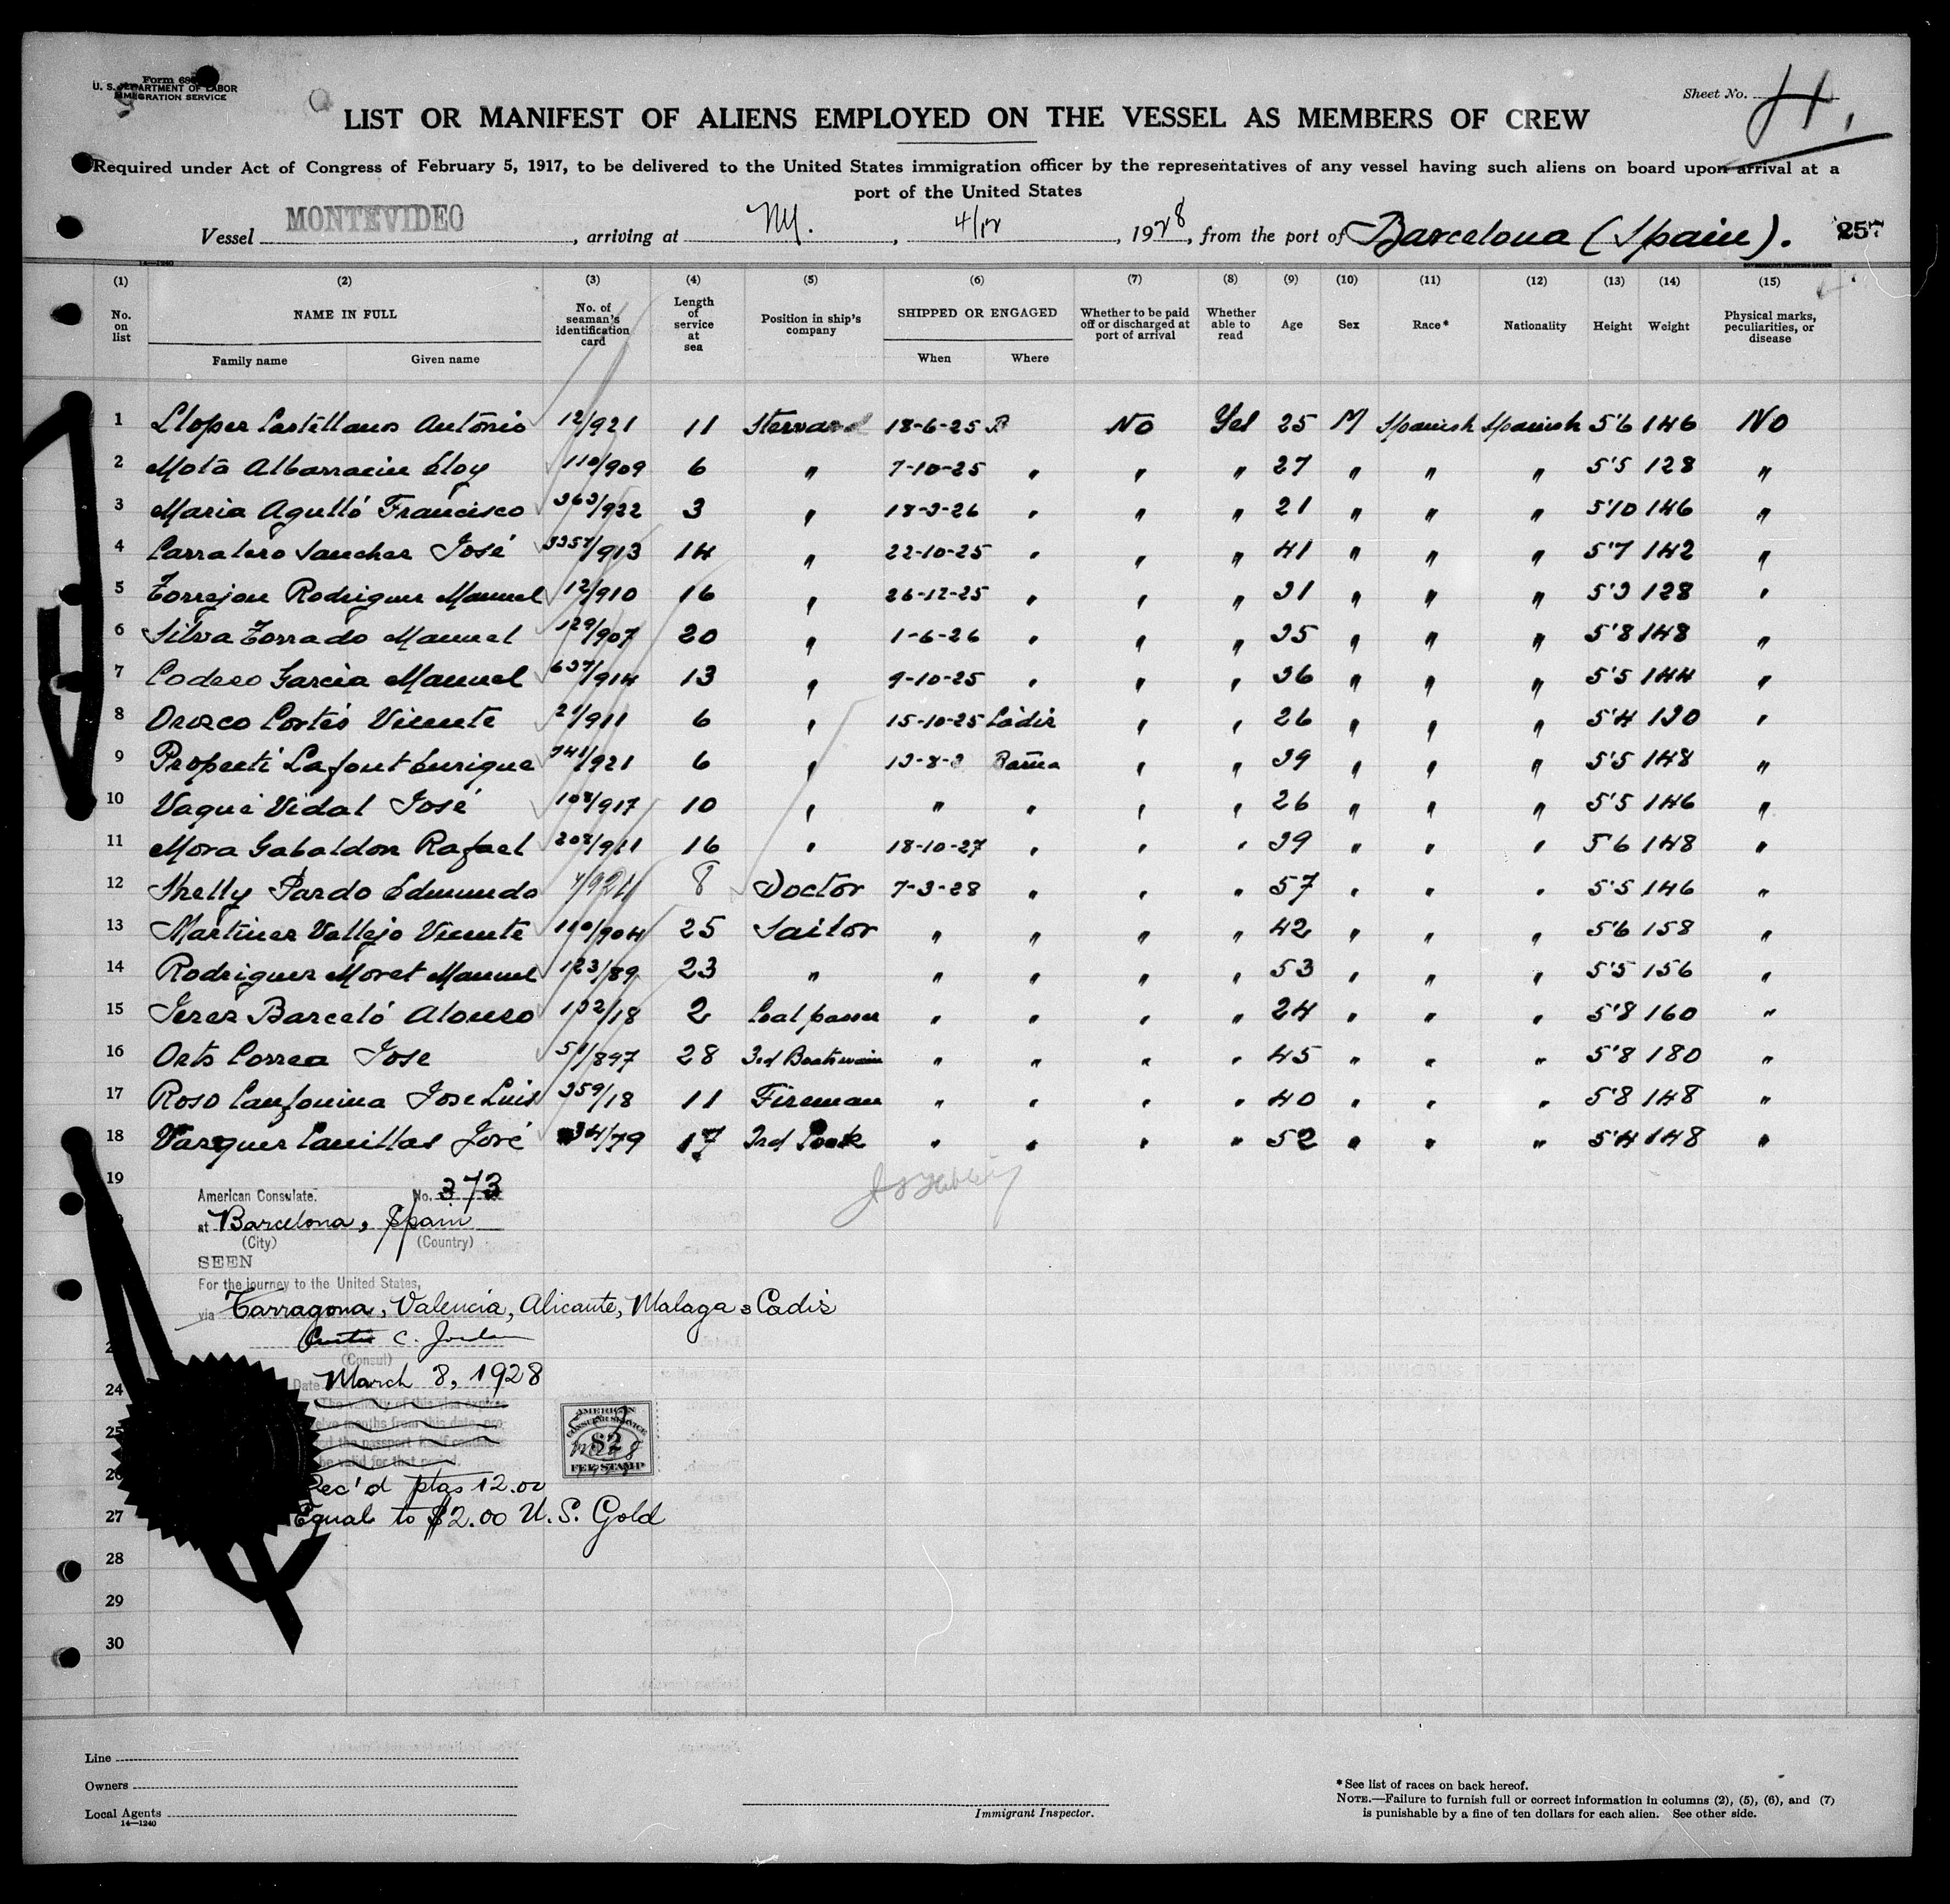 Form 680
U. S. DEPARTMENT OF LABOR
IMMIGRATION SERVICE
Sheet No. 4.
LIST OR MANIFEST OF ALIENS EMPLOYED ON THE VESSEL AS MEMBERS OF CREW
Required under Act of Congress of February 5, 1917, to be delivered to the United States immigration officer by the representatives of any vessel having such aliens on board upon arrival at a
port of the United States
Vessel MONTEVIDEO, arriving at NY., 4/12, 1928, from the port of Barcelona (Spain). 257
14—1240
(1) (2) (3) (4) (5) (6) (7) (8) (9) (10) (11) (12) (13) (14) (15)
No. on list NAME IN FULL Family name Given name No. of seaman's identification card Length of service at sea Position in ship's company SHIPPED OR ENGAGED When Where Whether to be paid off or discharged at port of arrival Whether able to read Age Sex Race* Nationality Height Weight Physical marks, peculiarities, or disease
1 Lloper Castellanos Antonio 12/921 11 Steward 18-6-25 B No Yes 25 M Spanish Spanish 5'6 146 No
2 Mota Albarracin Eloy 110/909 6 " 7-10-25 " " " 27 " " " 5'5 128 "
3 Maria Agulló Francisco 363/922 3 " 18-3-26 " " " 21 " " " 5'10 146 "
4 Carratero Sanchez José 913 14 " 22-10-25 " " " 41 " " " 5'7 142 "
5 Torrejon Rodriguez Manuel 12/910 16 " 26-12-25 " " " 31 " " " 5'3 128 "
6 Silva Torrado Manuel 129/907 20 " 1-6-26 " " " 35 " " " 5'8 148 "
7 Codero Garcia Manuel 637/914 13 " 9-10-25 " " " 36 " " " 5'5 144 "
8 Orozco Cortés Vicente 21/911 6 " 15-10-25 Cádiz " " 26 " " " 5'4 130 "
9 Properti Lafont Enrique 741/921 6 " 13-8- Barna " " 39 " " " 5'5 148 "
10 Vaqué Vidal José 108/917 10 " " " " " 26 " " " 5'5 146 "
11 Mora Gabaldon Rafael 208/911 16 " 18-10-27 " " " 39 " " " 5'6 148 "
12 Shelly Pardo Edmundo 8 Doctor 7-3-28 " " " 57 " " " 5'5 146 "
13 Martinez Vallejo Vicente 110/904 25 Sailor " " " " 42 " " " 5'6 158 "
14 Rodriguez Moret Manuel 123/89 23 " " " " " 53 " " " 5'5 156 "
15 Jerez Barceló Alonso 132/18 2 Coal passer " " " " 24 " " " 5'8 160 "
16 Orts Correa Jose 51/897 28 3rd Boatswain " " " " 45 " " " 5'8 180 "
17 Roso Canfonina Jose Luis 359/18 11 Fireman " " " " 40 " " " 5'8 148 "
18 Vazquez Canillas José 34/79 17 3rd Cook " " " " 52 " " " 5'4 148 "
19
American Consulate. No. 373
at Barcelona, Spain
(City) (Country)
SEEN
For the journey to the United States,
via Tarragona, Valencia, Alicante, Malaga & Cadiz
Curtis C. Jordan
(Consul)
Date March 8, 1928
24
The validity of this visa expires
25
twelve months from this date, pro-
ed the passport itself continues
be valid for that period.
AMERICAN
CONSULAR SERVICE
$2
FEE STAMP
26
Rec'd ptas 12.00
27
Equal to $2.00 U.S. Gold
28
29
30
Line
Owners
Local Agents
14—1240
Immigrant Inspector.
* See list of races on back hereof.
NOTE.—Failure to furnish full or correct information in columns (2), (5), (6), and (7)
is punishable by a fine of ten dollars for each alien. See other side.